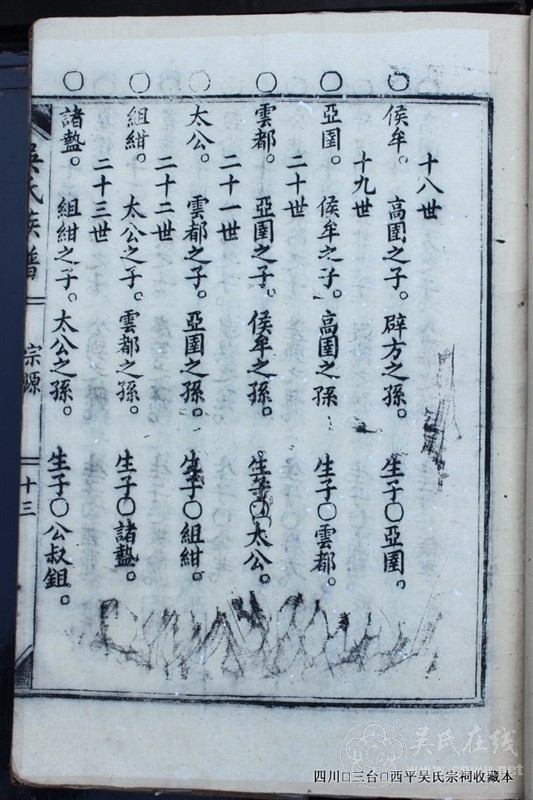 十八世
○侯牟。 高圉之子。辟方之孫。 生子〇亞圉。
十九世
○亞圉。 侯牟之子。高圉之孫 生子〇雲都。
二十世
○雲都。 亞圉之子。侯牟之孫。 生子〇太公。
二十一世
○太公。 雲都之子。亞圉之孫。 生子〇組紺。
二十二世
○組紺。 太公之子。雲都之孫。 生子〇諸盩。
二十三世
○諸盩。 組紺之子。太公之孫。 生子〇公叔鉏。
吳氏族譜 宗源 十三
吴氏在线
www.cnwu.net
四川□三台□西平吴氏宗祠收藏本